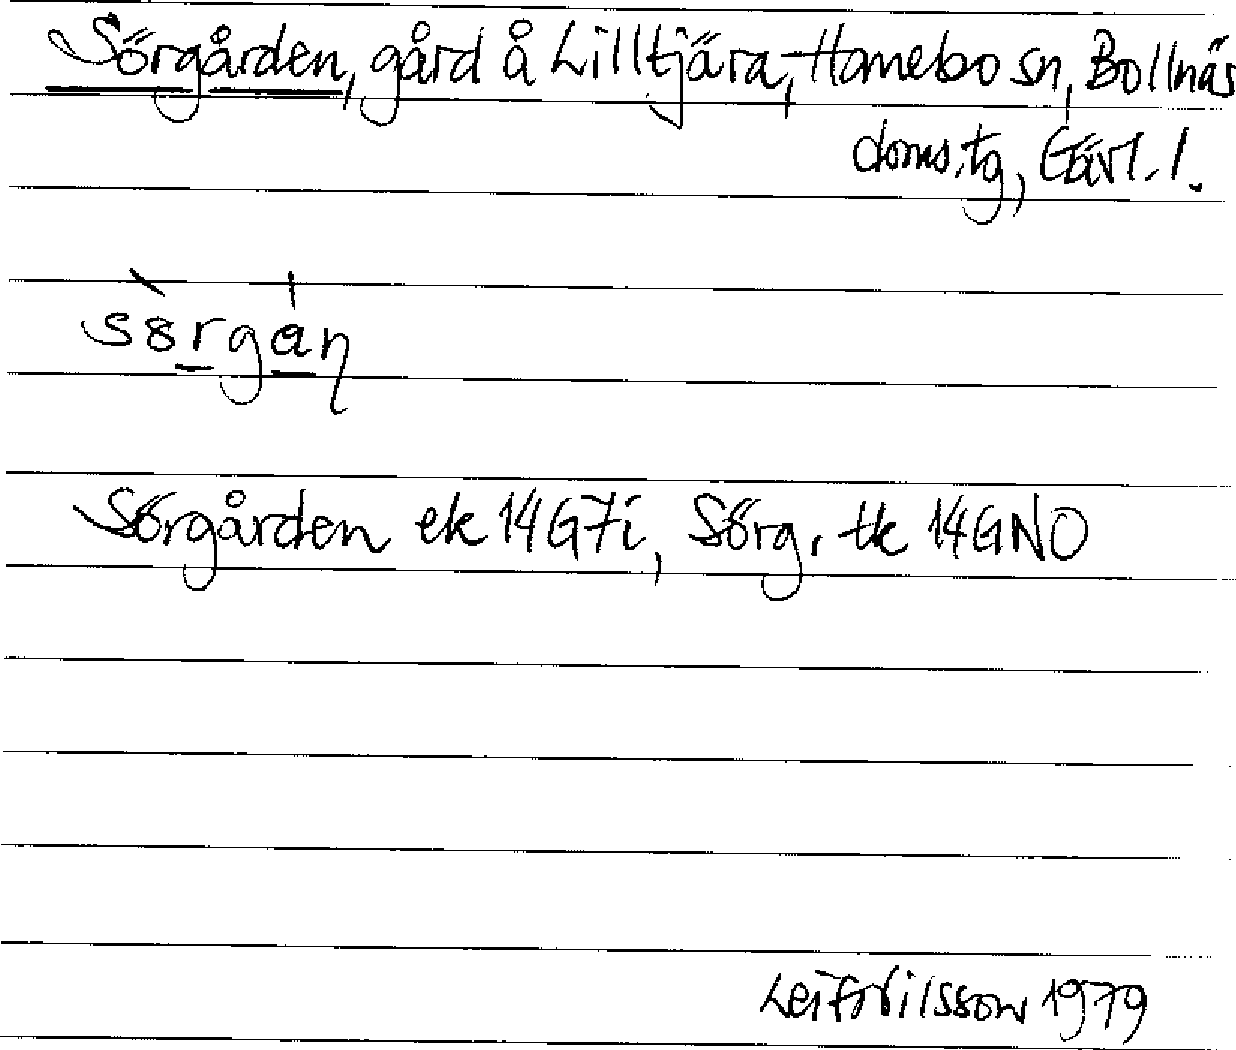 Sörgården, gård å Lilltjära, Hanebo sn, Bollnäs
doms.tg, Gävl. l.
sörgån
Sörgården ek 14G7i, Sörg. tk 14GNO
Leif Nilsson 1979